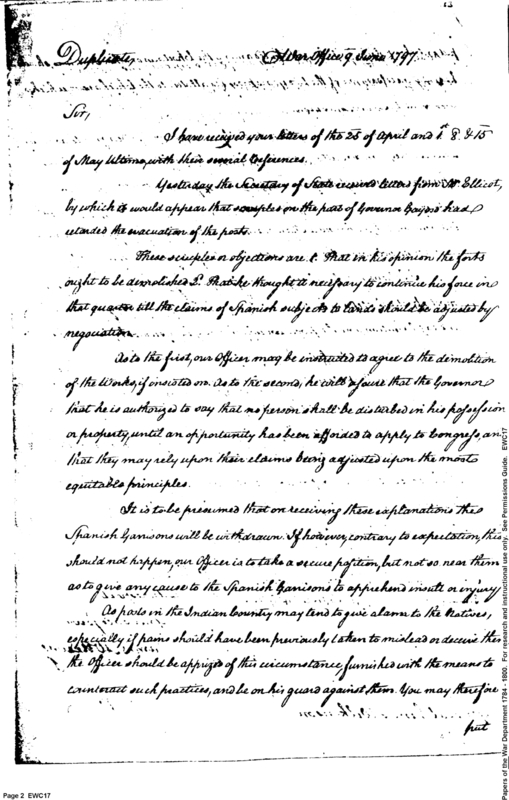 13
Duplicate, War Office 9 June 1797.
Sir,
I have received your letters of the 25 of April and 1st 8. & 15
of May Ultimo, with their several references.
Yesterday the Secretary of State received letters from Mr Ellicot,
by which it would appear that scruples on the part of Governor Gayoso had
retarded the evacuation of the posts.
These scruples or objections are 1. That in his opinion the forts
ought to be demolished 2. That he thought it necessary to continue his force in
that quarter till the claims of Spanish subjects to lands should be adjusted by
negociation.
As to the first, our Officer may be instructed to agree to the demolition
of the Works, if insisted on. As to the second, he will assure that the Governor
that he is authorized to say that no person shall be disturbed in his possession
or property, until an opportunity has been afforded to apply to Congress, an
that they may rely upon their claims being adjusted upon the most
equitable principles.
It is to be presumed that on receiving these explanations the
Spanish Garrisons will be withdrawn. If however, contrary to expectation, this
should not happen, our Officer is to take a secure position, but not so near them
as to give any cause to the Spanish Garrisons to apprehend insult or injury
As posts in the Indian Country may tend to give alarm to the Natives,
especially if pains should have been previously taken to mislead or deceive them
the Officer should be apprized of this circumstance, furnished with the means to
counteract such practices, and be on his guard against them. You may therefore
put
Page 2 EWC17
Papers of the War Department 1784 - 1800. For research and instructional use only. See Permissions Guide. EWC17